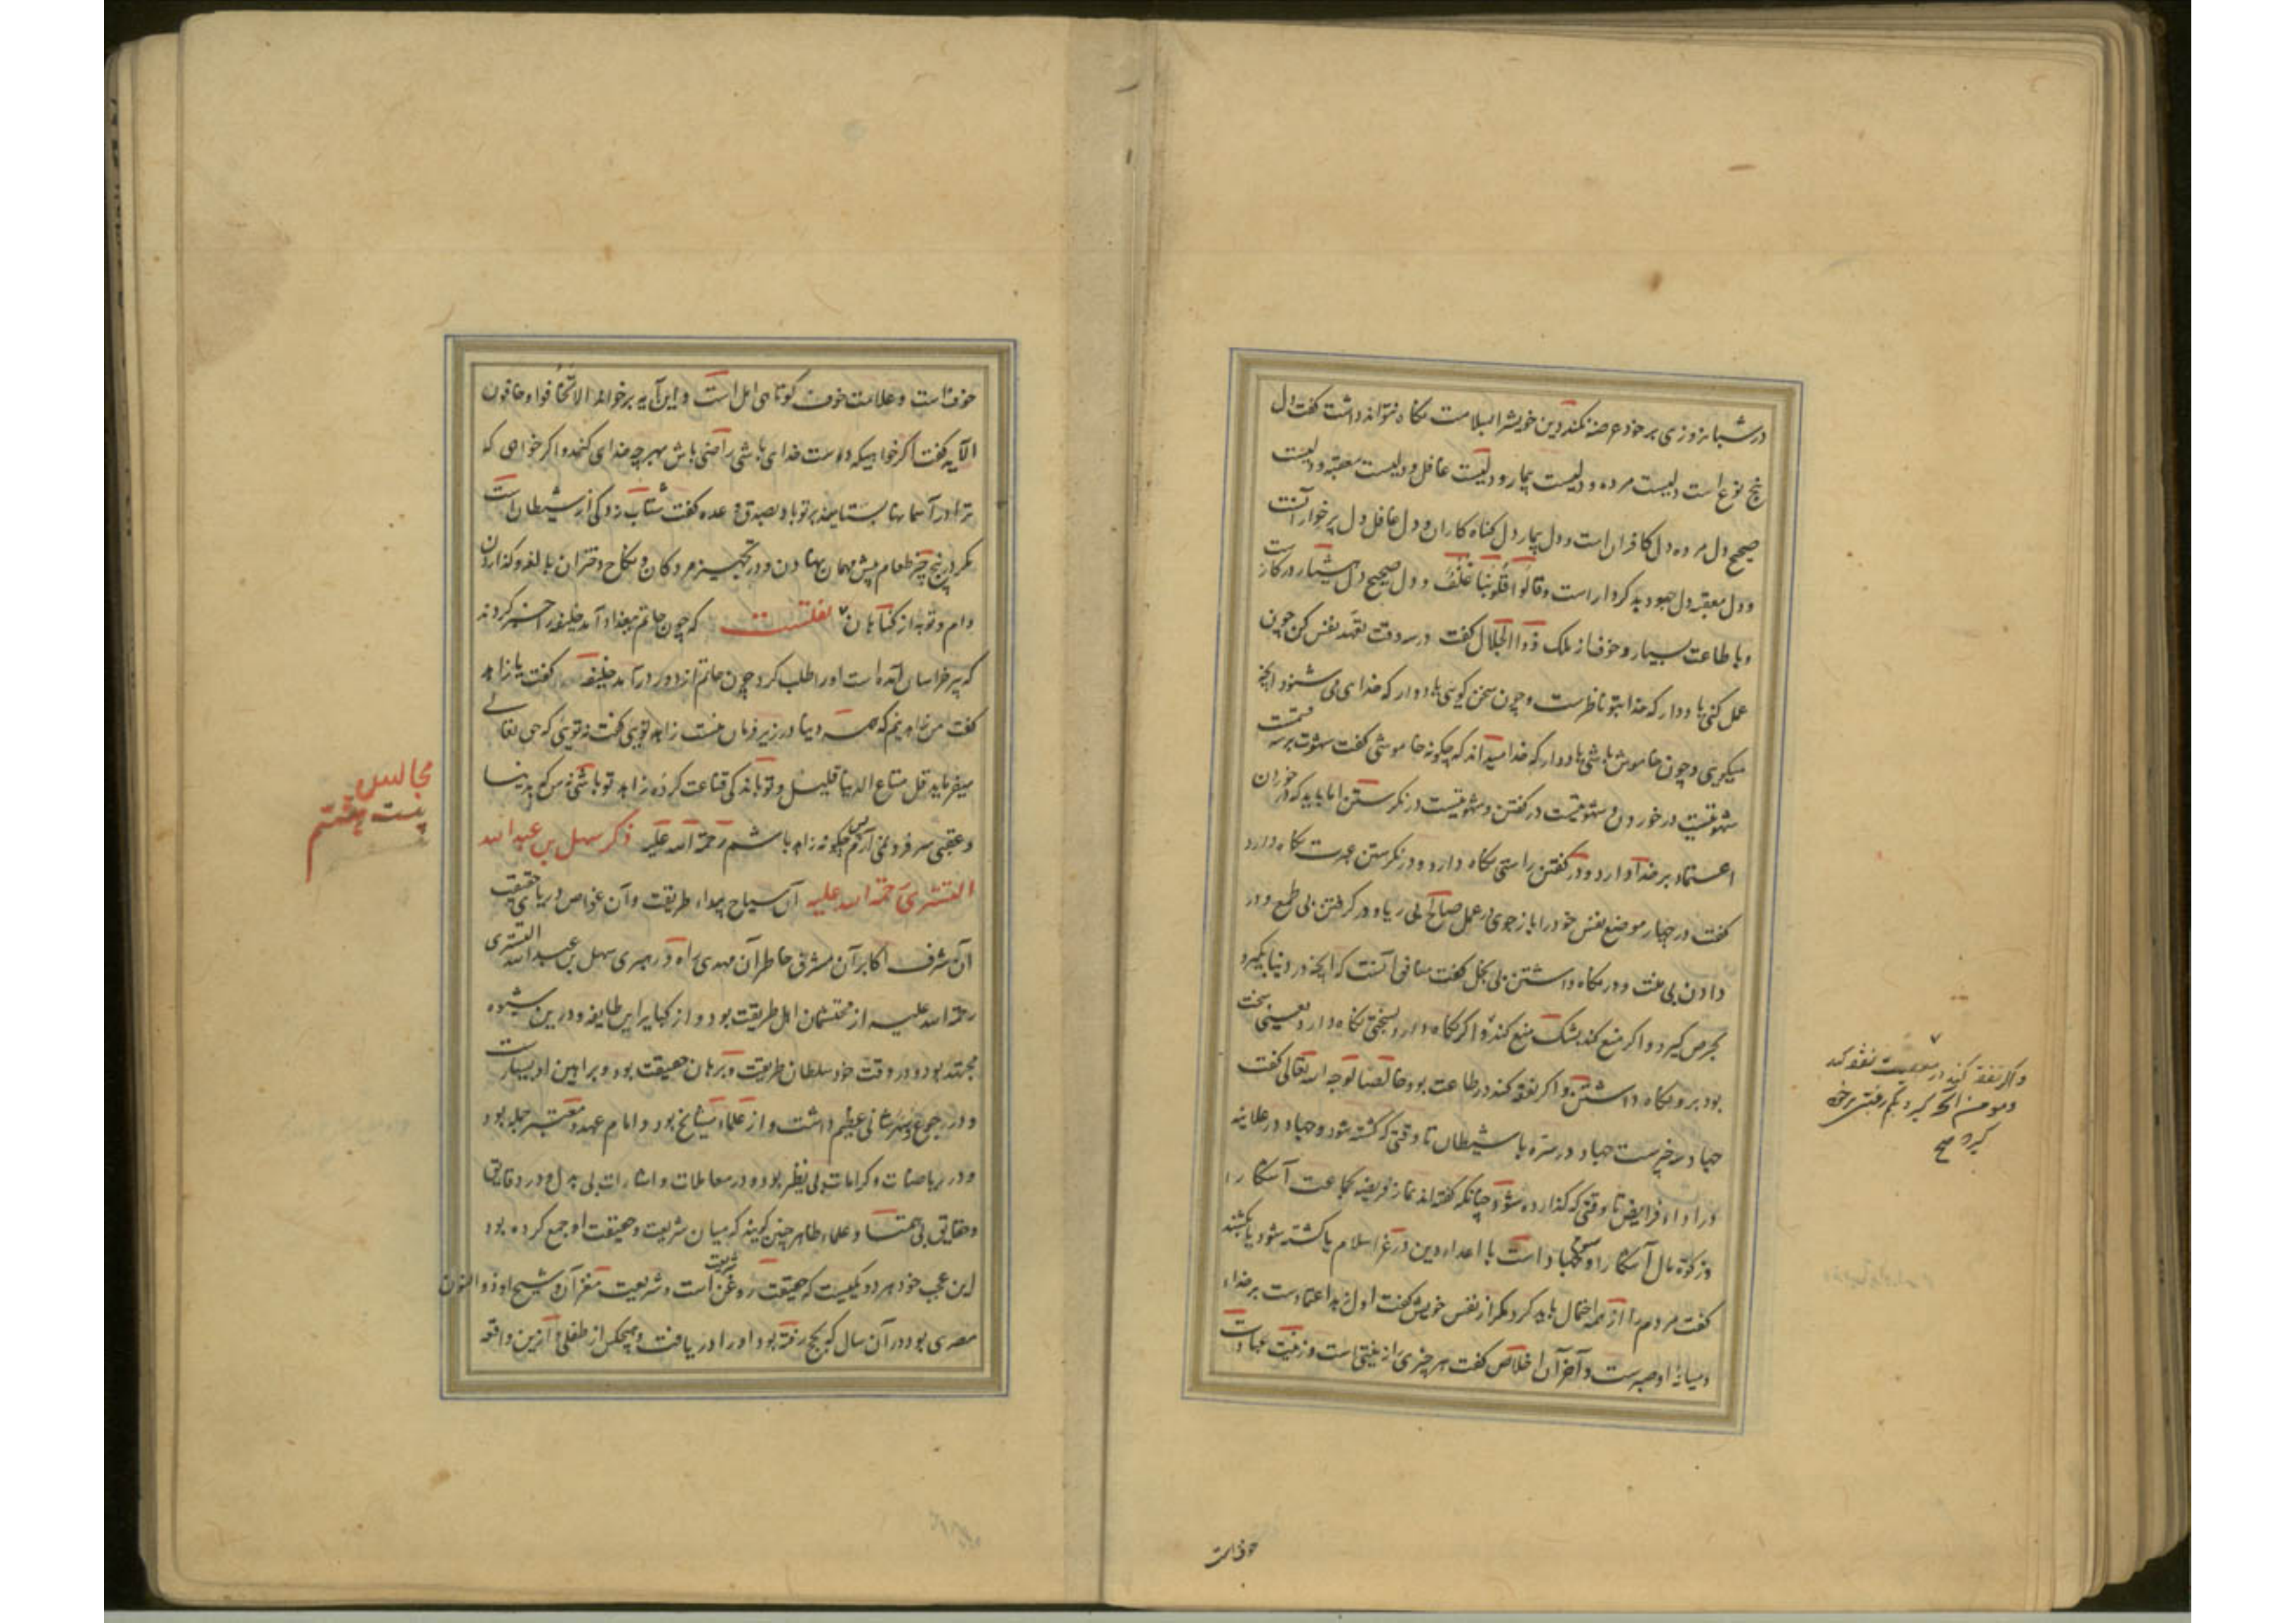 در شبانروزی بر خود عرضه نکند دین خویش را بسلامت نگاه نتواند داشت گفت دل
پنج نوع است دلیست مرده و دلیست بیمار و دلیست غافل و دلیست معتبه و دلیست
صحیح دل مرده دل کافران است و دل بیمار دل کناه کاران و دل غافل دل پرخوار آنست
و دل معتبه دل جهود بد کردار است وقالوا قلوبنا غلف و دل صحیح دل هشیار در کار است
و با طاعت بسیار و خوف از ملک ذوالجلال گفت در سه وقت تعهد نفس کن چون
عمل کنی یاد دار که خدا بتو ناظرست و چون سخن گویی یاد دار که خدای می شنود آنچه
میگویی و چون خاموش باشی یاد دار که خدا میداند که چگونه خاموشی گفت شهوت بر سه قسمت
شهوتیست در خوردن و شهوتیست در گفتن و شهوتیست در نگرستن اما باید که در خوردن
اعتماد بر خدا دارد و در گفتن راستی نگاه دارد و در نگرستن عبرت نگاه دارد
گفت در چهار موضع نفس خود را باز جوی در عمل صالح بی ریا و در گرفتن بی طمع و در
دادن بی منت و در نگاه داشتن بی بخل گفت منافق آنست که آنچه در دنیا بگیرد
بحرص گیرد و اگر منع کند بشک منع کند و اگر نگاه دارد بسختی نگاه دارد یعنی سخت
بود برو نگاه داشتن و اگر نفقه کند در طاعت بود خالصا لوجه الله تعالی گفت
جهاد سه چیزست جهاد در سره با شیطان تا وقتی که کشته شود و جهاد در علانیه
در اداء فرایض تا وقتی که گذارده شود چنانکه گفته اند نماز فریضه بجماعت آشکارا
و زکوة مال آشکارا و سوم جهاد است با اعداء دین در غزاء اسلام یا کشته شود یا بکشند
گفت مردم را از همه احتمال باید کرد مگر از نفس خویش گفت اول زهد اعتمادست بر خداء
و میانه او صبرست و آخر آن اخلاص گفت هر چیزی را زینتی است و زینت عبادت
و اگر نفقه کند در معصیت نفقه کند
و مومن آنچه گیرد بکم رغبتی و خوف
گیرد صح
خوفست
خوف است و علامت خوف کوتاهی امل است و این آیه بر خواند الا تخافوا و خافون
الآیه گفت اگر خواهیکه دوست خدای باشی راضی باش بهرچه خدای کند و اگر خواهی که
ترا در آسمانها بستایند بر تو باد بصدق وعده گفت شتاب زدگی از شیطان است
مگر در پنج چیز طعام پیش مهمان نهادن و در تجهیز مردگان و نکاح دختران بالغه و گذاردن
وام و توبه از گناهان نقلست که چون حاتم ببغداد آمد خلیفه را خبر کردند
که پیر خراسان آمده است او را طلب کرد چون حاتم از در در آمد خلیفه گفت یا زاهد
گفت من زاهد نیم که همه دنیا در زیر فرمان منست زاهد تویی گفت نه تویی که حق تعالی
میفرماید قل متاع الدنیا قلیل و تو باندکی قناعت کرده زاهد تو باشی نه من که بدنیا
و عقبی سر فرو نمی آرم پس چگونه زاهد باشم رحمة الله علیه ذکر سهل بن عبد الله
التستری رحمة الله علیه آن سیاح بیداء طریقت و آن غواص دریای حقیقت
آن شرف اکابر آن مشرق خاطر آن مهدی راه و رهبری سهل بن عبد الله التستری
رحمة الله علیه از محتشمان اهل طریقت بود و از کبایر این طایفه و درین شیوه
مجتهد بود و در وقت خود سلطان طریقت و برهان حقیقت بود و براهین او بسیارست
و در جوع و سهر شانی عظیم داشت و از علماء مشایخ بود و امام عهد و معتبر جمله بود
و در ریاضات و کرامات بی نظیر بوده در معاملات و اشارات بی بدل و در دقایق
و حقایق بی همتا و علماء ظاهر چنین گویند که میان شریعت و حقیقت او جمع کرده بود
این عجب خود هر دو یکیست که حقیقت روغن شریعت است و شریعت مغز آن و شیخ او ذوالنون
مصری بود در آن سال که بحج رفته بود او را دریافت و هیچکس از طفلی از این واقعه
مجالس
بیست هفتم